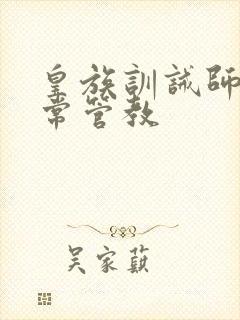 皇族訓誡師
常管教
吴家蘇